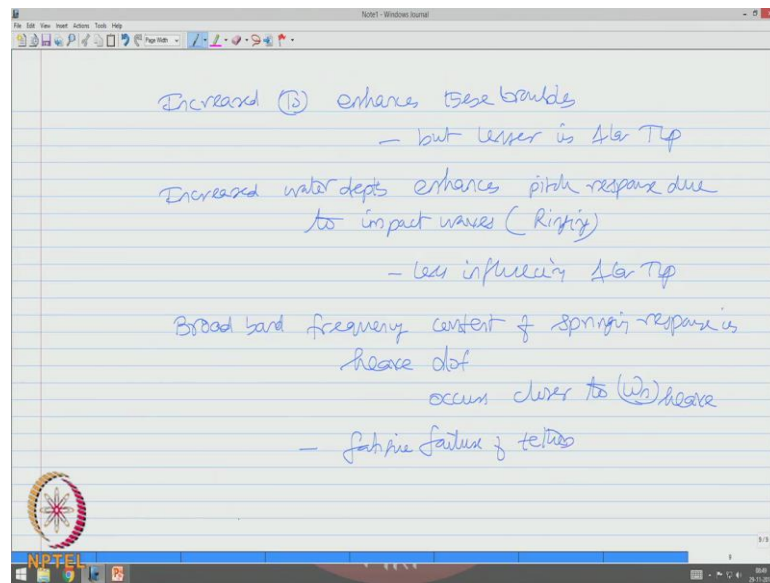 Note1 - Windows Journal
File Edit View Insert Actions Tools Help
Page Width
Increased enhances these
- but lesser in TLP
Increased water depts enhances pitch response due
to impact waves (Ringing)
- less influencing TLP
Broad band frequency content of springing response in
heave dof
occurs closer to (ωn) heave
- fatigue failure of
9/9
9
NPTEL